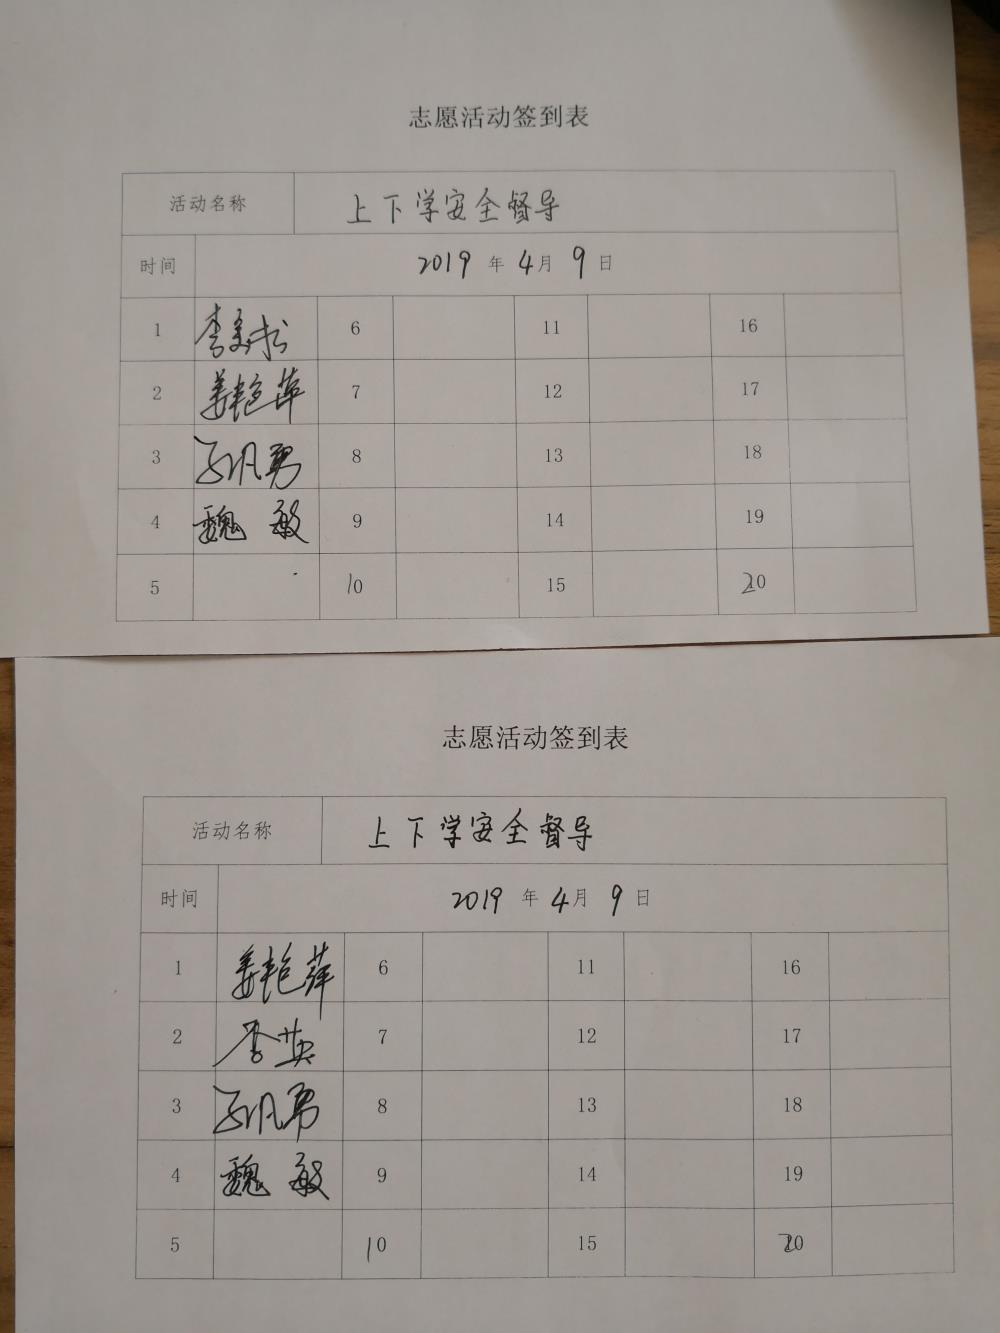 志愿活动签到表
活动名称 上下学安全督导
时间 2019 年 4 月 9 日
1 李 6 11 16
2 姜艳萍 7 12 17
3 孙凡勇 8 13 18
4 魏敏 9 14 19
5 10 15 20
志愿活动签到表
活动名称 上下学安全督导
时间 2019 年 4 月 9 日
1 姜艳萍 6 11 16
2 李英 7 12 17
3 孙凡勇 8 13 18
4 魏敏 9 14 19
5 10 15 20